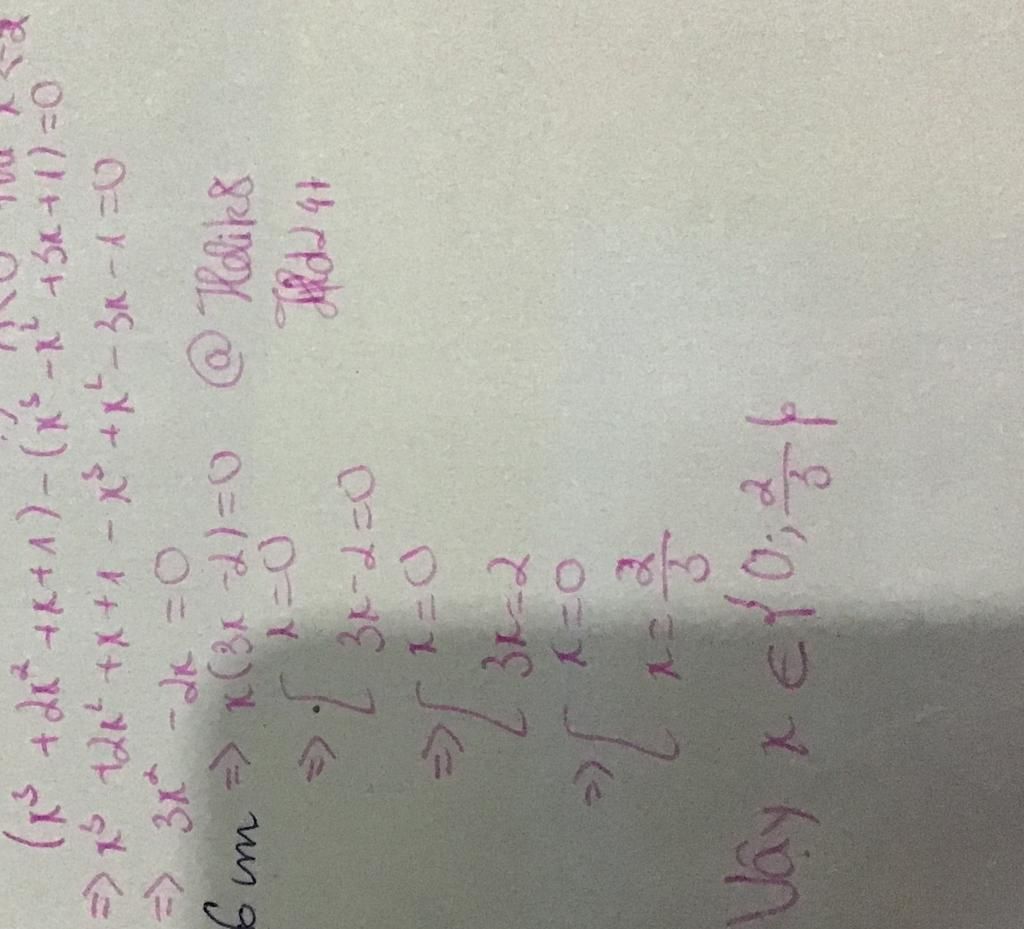 (x³ + 2x² + x + 1) - (x³ - x² + 3x + 1) = 0
=> x³ + 2x² + x + 1 - x³ + x² - 3x - 1 = 0
=> 3x² - 2x = 0
6 um => x(3x - 2) = 0 @
=> [ x = 0
3x - 2 = 0
=> [ x = 0
3x = 2
=> [ x = 0
x = 2/3
Vậy x ∈ {0; 2/3}